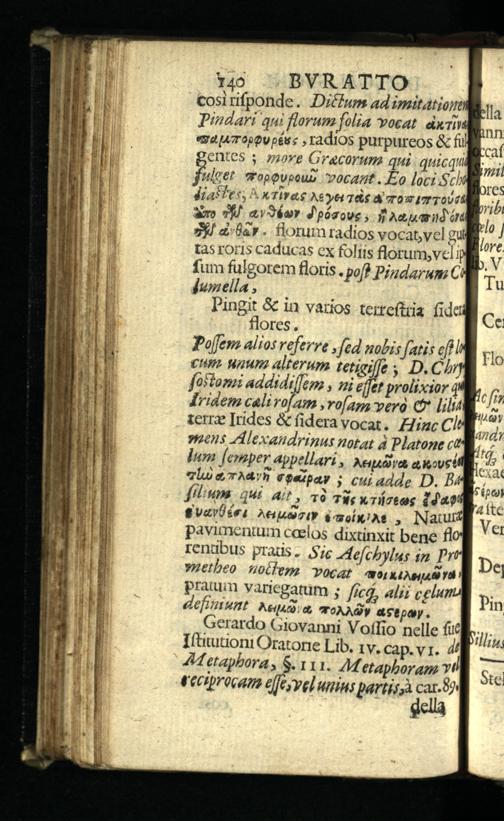 140 BVRATTO
così risponde. Dictum ad imitationem
Pindari qui florum folia vocat ακτῖνα
παμπορφυρέυς, radios purpureos & ful
gentes; more Græcorum qui quicquid
fulget πορφυροιῶ vocant. Eo loci Scho
liastes, Ακτῖνας λεγει τὰς ἀποπιπτούσα
ἀπο τῆς ανθέων δρόσους, ἢ λαμπηδόνα
τῆς ἀνθῶν. florum radios vocat, vel gut
tas roris caducas ex foliis florum, vel ip
sum fulgorem floris. post Pindarum Co
lumella,
Pingit & in varios terrestria sidera
flores.
Possem alios referre, sed nobis satis est lo
cum unum alterum tetigisse; D. Chry
sostomi addidissem, ni esset prolixior qui
Iridem cæli rosam, rosam verò & lilia
terræ Irides & sidera vocat. Hinc Cle
mens Alexandrinus notat à Platone cæ
lum semper appellari, λειμῶνα
τἱω απλανῆ σφαῖραν; cui adde D. Ba
silium qui ait, τὸ τῆς κτήσεως ἔδαφος
ἐυανθέσι λειμῶσιν ἐποίκιλε, Naturæ
pavimentum cœlos distinxit bene flo
rentibus pratis. Sic Aeschylus in Pro
metheo noctem vocat ποικιλειμῶνα,
pratum variegatum; sicq; alii cęlum
definiunt λειμῶνα πολλῶν αςερων.
Gerardo Giovanni Vossio nelle sue
Istitutioni Oratorie Lib. IV. cap. VI. de
Metaphora, §. III. Metaphoram vel
reciprocam esse, vel unius partis, à car. 89.
della